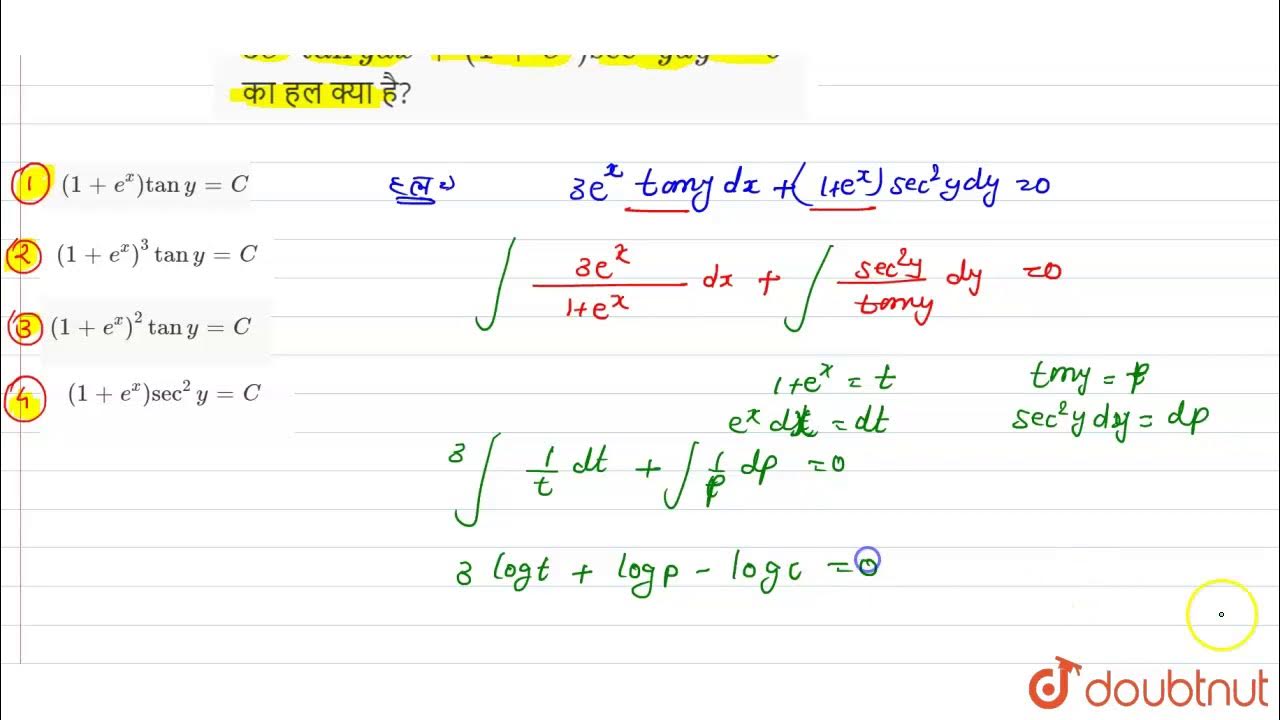 का हल क्या है?
1 (1 + e^x)tan y = C
2 (1 + e^x)^3 tan y = C
3 (1 + e^x)^2 tan y = C
4 (1 + e^x)sec^2 y = C
हल ⇒ 3e^x tany dx + (1+e^x) sec^2y dy = 0
∫ 3e^x / 1+e^x dx + ∫ sec^2y / tany dy = 0
1+e^x = t tany = p
e^x dx = dt sec^2y dy = dp
3 ∫ 1/t dt + ∫ 1/p dp = 0
3 logt + logp - logc = 0
doubtnut